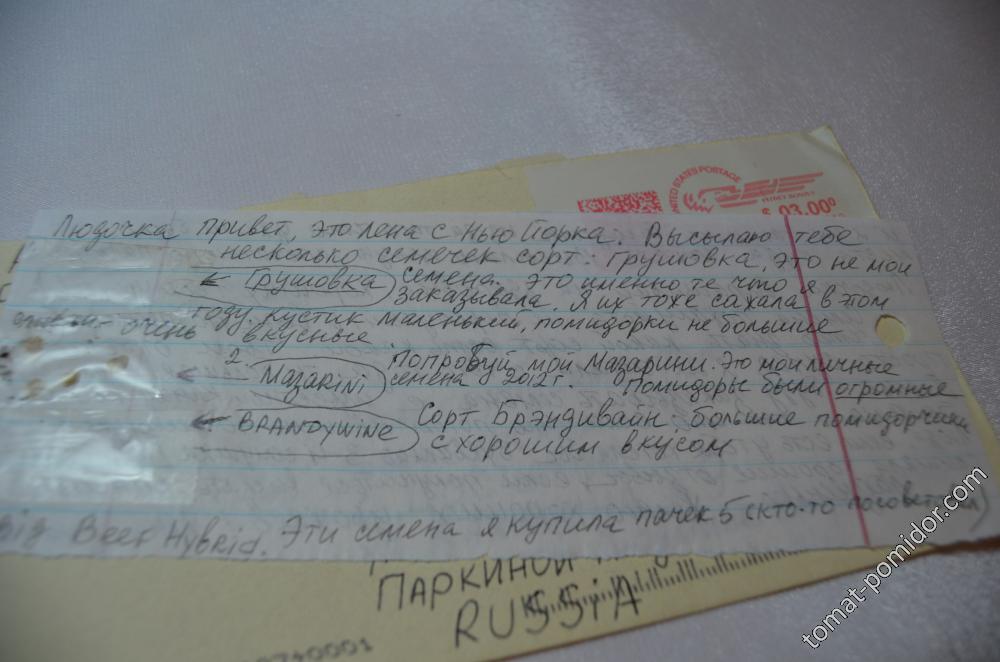 UNITED STATES POSTAGE
PITNEY BOWES
$ 03.00⁰
Людочка привет, это Лена с Нью Йорка. Высылаю тебе
несколько семечек сорт: Грушовка, это не мои
← Грушовка семена. Это именно те что я
заказывала. Я их тоже сажала в этом
году. Кустик маленький, помидорки не большие
очень вкусные
2. Mazarini Попробуй мой Мазарини. Это мои личные
семена 2012г. Помидоры были огромные
← BRANDYWINE Сорт Брэндивайн: большие помидорчики
с хорошим вкусом
Big Beef Hybrid. Эти семена я купила пачек 5 (кто-то посоветовал)
ПАРКИНОЙ
RUSSiA
0740001
tomat-pomidor.com